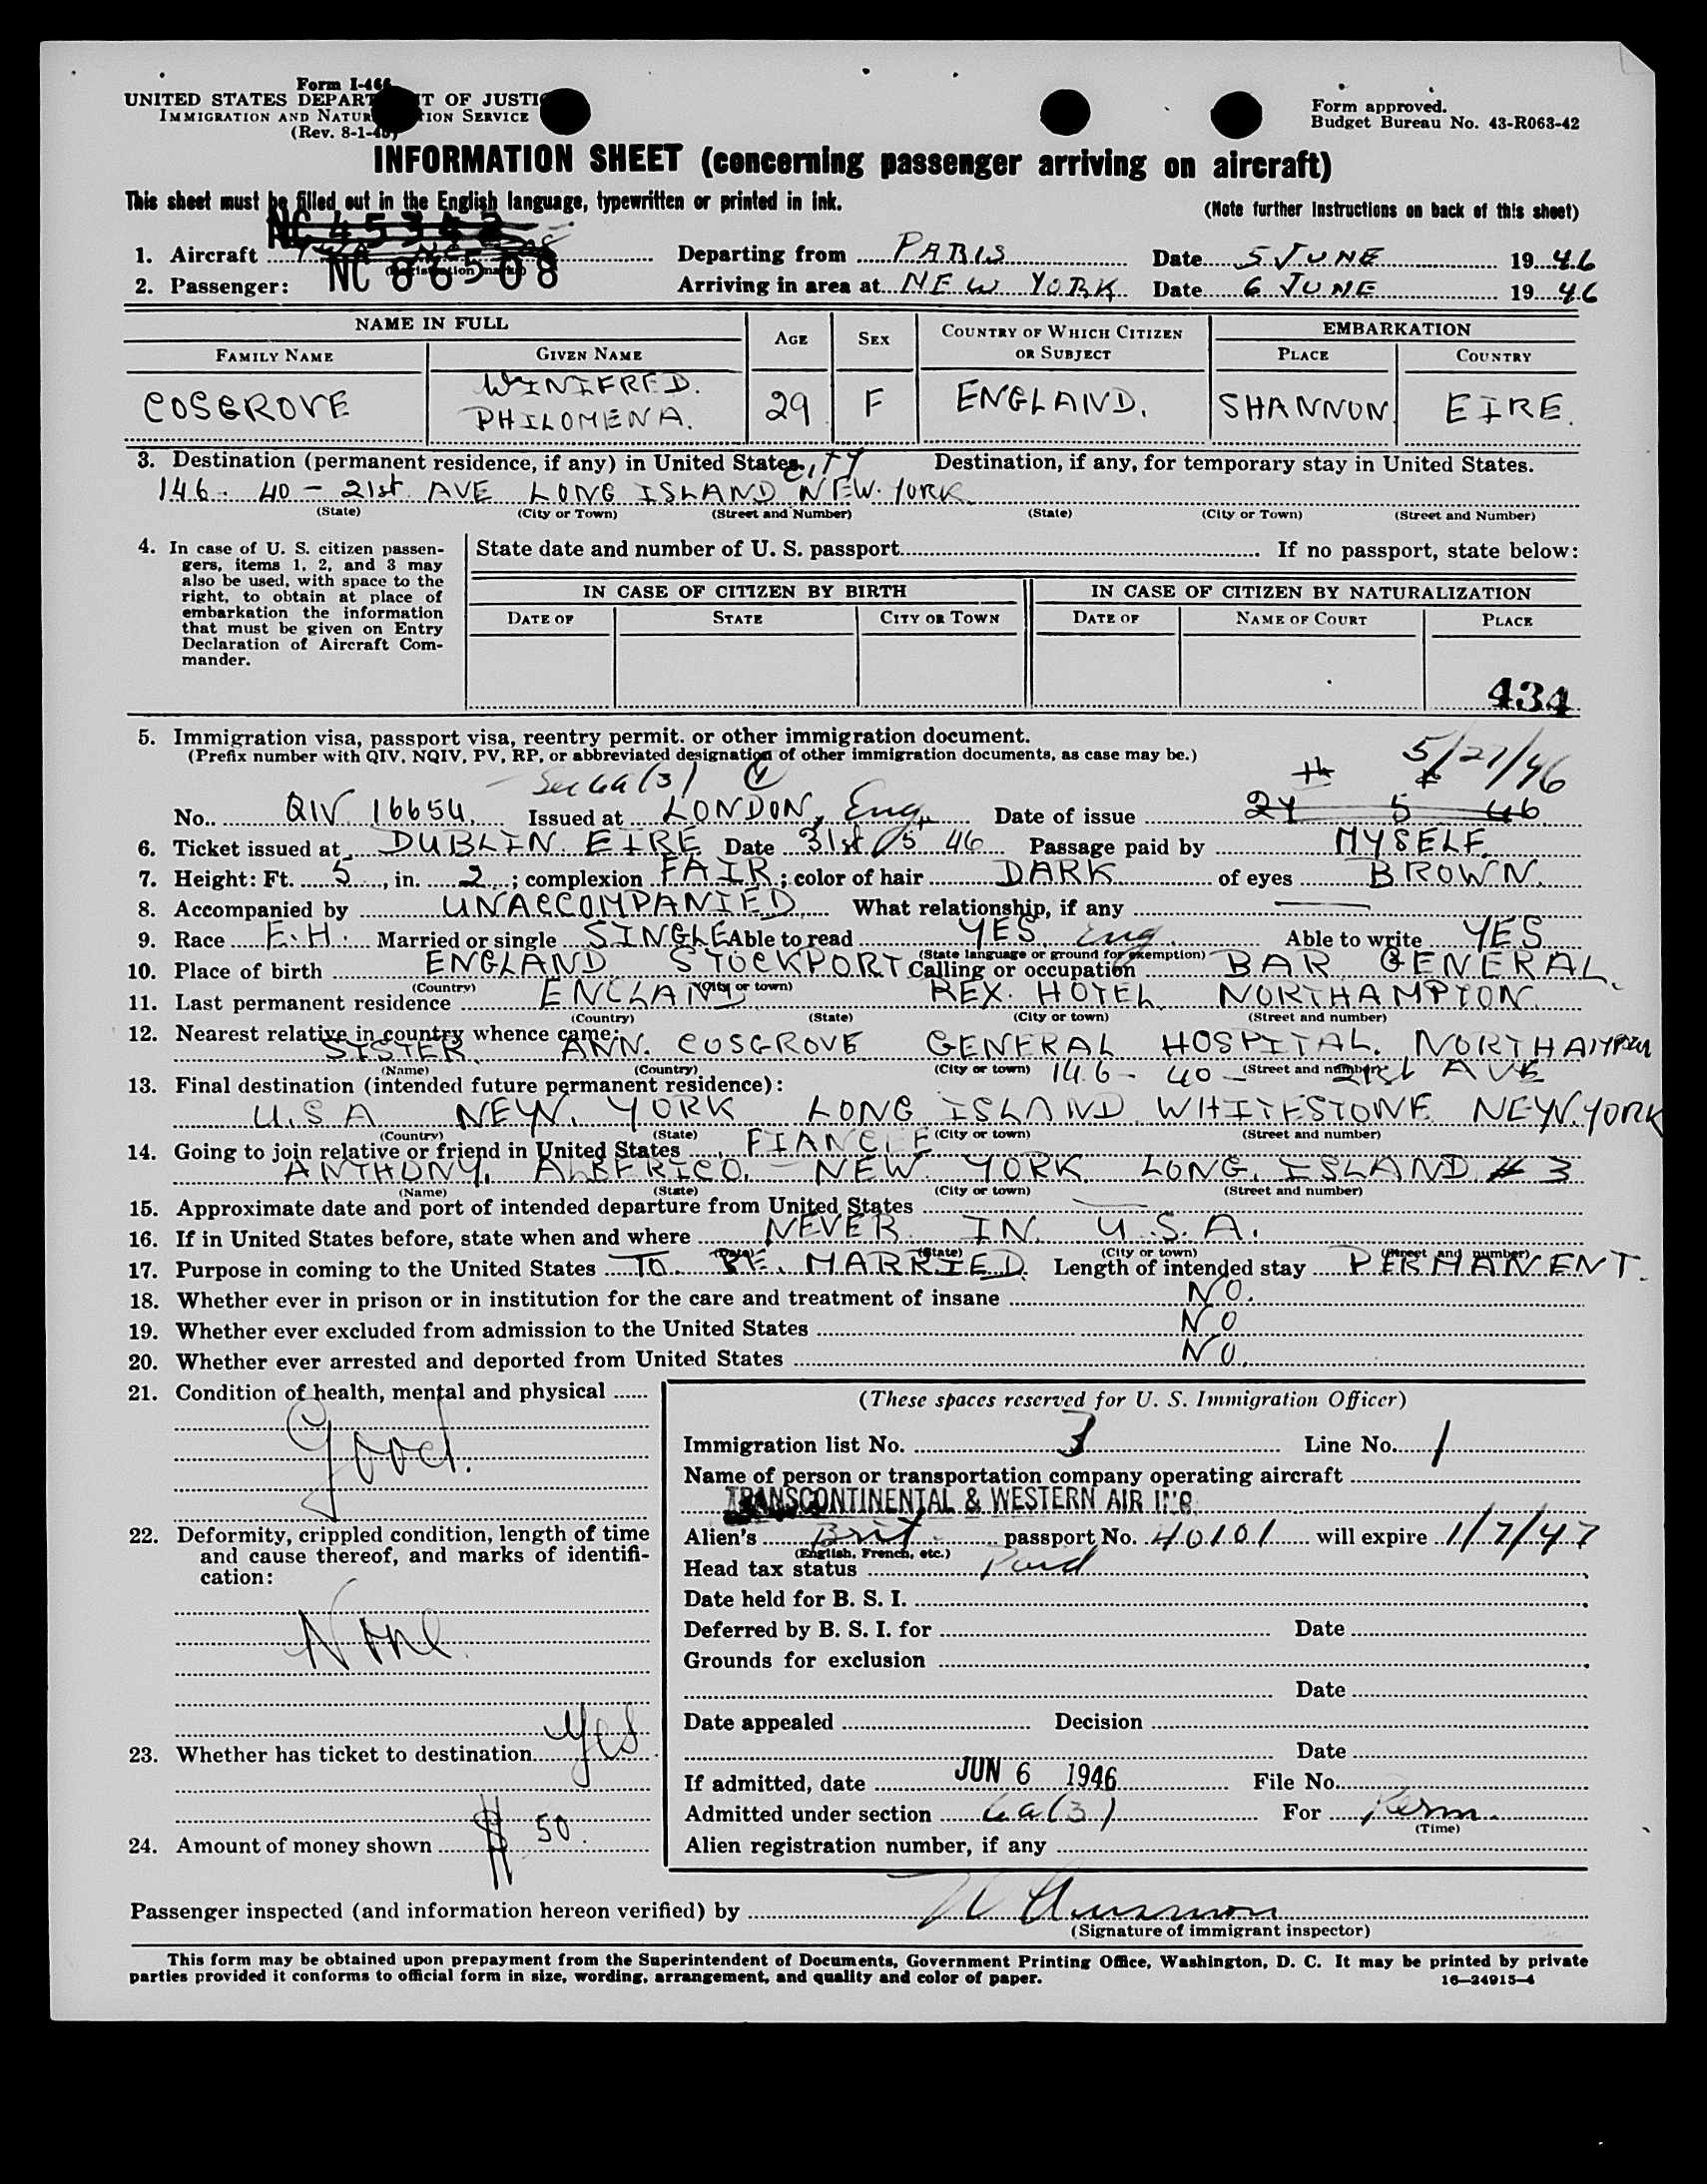 Form I-466
UNITED STATES DEPARTMENT OF JUSTICE
IMMIGRATION AND NATURALIZATION SERVICE
(Rev. 8-1-45)
Form approved.
Budget Bureau No. 43-R063-42
INFORMATION SHEET (concerning passenger arriving on aircraft)
This sheet must be filled out in the English language, typewritten or printed in ink.
(Note further instructions on back of this sheet)
NC 45342
1. Aircraft Departing from PARIS Date 5 JUNE 1946
(Registration mark)
2. Passenger: NC 86508 Arriving in area at NEW YORK Date 6 JUNE 1946
NAME IN FULL AGE SEX COUNTRY OF WHICH CITIZEN OR SUBJECT EMBARKATION
FAMILY NAME GIVEN NAME PLACE COUNTRY
COSGROVE WINIFRED. PHILOMENA. 29 F ENGLAND. SHANNON EIRE.
3. Destination (permanent residence, if any) in United States. Destination, if any, for temporary stay in United States.
city
146-40-21st AVE LONG ISLAND NEW. YORK
(State) (City or Town) (Street and Number) (State) (City or Town) (Street and Number)
4. In case of U. S. citizen passen-
gers, items 1, 2, and 3 may
also be used, with space to the
right, to obtain at place of
embarkation the information
that must be given on Entry
Declaration of Aircraft Com-
mander.
State date and number of U. S. passport If no passport, state below:
IN CASE OF CITIZEN BY BIRTH IN CASE OF CITIZEN BY NATURALIZATION
DATE OF STATE CITY OR TOWN DATE OF NAME OF COURT PLACE
434
5. Immigration visa, passport visa, reentry permit, or other immigration document.
(Prefix number with QIV, NQIV, PV, RP, or abbreviated designation of other immigration documents, as case may be.)
Sec 6a(3) 5/27/46
No. QIV 16654. Issued at LONDON, Eng. Date of issue 27 5 46
6. Ticket issued at DUBLIN. EIRE Date 31st/5 46 Passage paid by MYSELF.
7. Height: Ft. 5, in. 2; complexion FAIR; color of hair DARK of eyes BROWN.
8. Accompanied by UNACCOMPANIED What relationship, if any —
9. Race E.H. Married or single SINGLE Able to read YES Eng. Able to write YES
(State language or ground for exemption)
10. Place of birth ENGLAND STOCKPORT Calling or occupation BAR GENERAL.
(Country) (City or town)
11. Last permanent residence ENGLAND REX. HOTEL NORTHAMPTON.
(Country) (State) (City or town) (Street and number)
12. Nearest relative in country whence came:
SISTER. ANN. COSGROVE GENERAL HOSPITAL. NORTHAMPTON
(Name) (Country) (City or town) (Street and number)
146-40-21st AVE
13. Final destination (intended future permanent residence):
U.S.A NEW. YORK LONG ISLAND. WHITESTONE NEW.YORK
(Country) (State) (City or town) (Street and number)
14. Going to join relative or friend in United States FIANCEE
ANTHONY. ALBERICO. - NEW YORK LONG. ISLAND # 3
(Name) (State) (City or town) (Street and number)
15. Approximate date and port of intended departure from United States —
16. If in United States before, state when and where NEVER IN U.S.A.
(Date) (State) (City or town) (Street and number)
17. Purpose in coming to the United States TO BE. MARRIED. Length of intended stay PERMANENT.
18. Whether ever in prison or in institution for the care and treatment of insane NO.
19. Whether ever excluded from admission to the United States NO
20. Whether ever arrested and deported from United States NO.
21. Condition of health, mental and physical
Good.
22. Deformity, crippled condition, length of time
and cause thereof, and marks of identifi-
cation:
None.
23. Whether has ticket to destination yes
24. Amount of money shown $ 50.
(These spaces reserved for U. S. Immigration Officer)
Immigration list No. 3 Line No. 1
Name of person or transportation company operating aircraft
TRANSCONTINENTAL & WESTERN AIR INC.
Alien's Brit. passport No. 40101 will expire 1/7/47
(English, French, etc.)
Head tax status Paid
Date held for B. S. I.
Deferred by B. S. I. for Date
Grounds for exclusion
Date
Date appealed Decision
Date
If admitted, date JUN 6 1946 File No.
Admitted under section 6a(3) For Perm.
(Time)
Alien registration number, if any
Passenger inspected (and information hereon verified) by
(Signature of immigrant inspector)
This form may be obtained upon prepayment from the Superintendent of Documents, Government Printing Office, Washington, D. C. It may be printed by private
parties provided it conforms to official form in size, wording, arrangement, and quality and color of paper.
16—24915-4